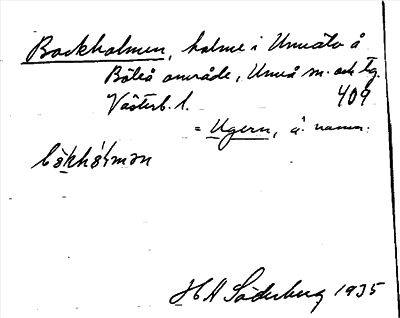 Bockholmen, holme i Umeälv å
Böleå område, Umeå sn. och tg.
Västerb. l. 409
= Ugern, ä. namn.
HH Söderberg 1935